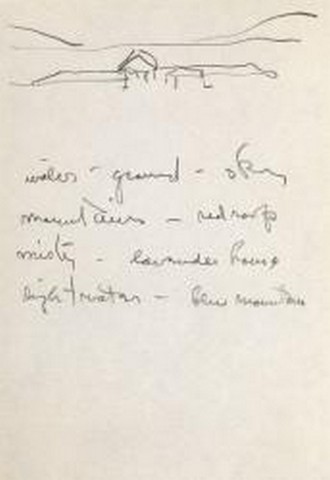 water - ground - sky
mountains - red roof
misty - lavender house
light water - blue mountain